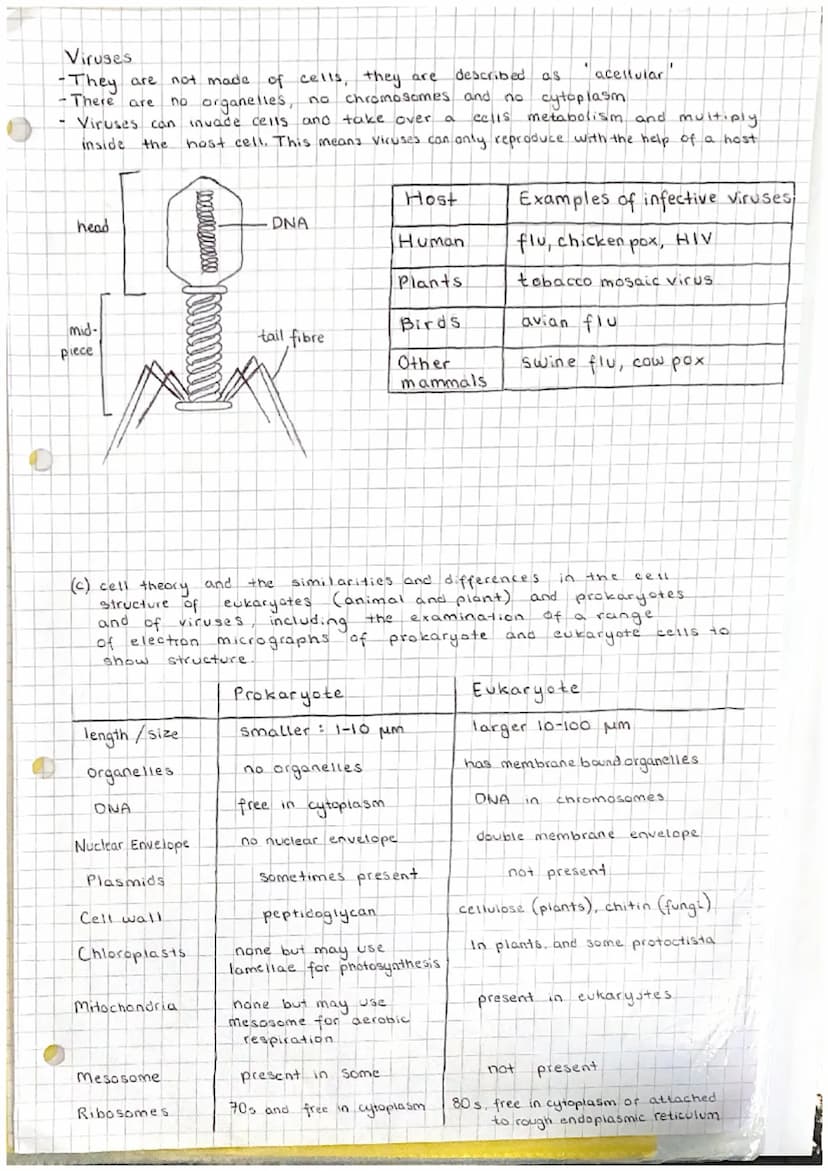 Viruses
- They are not made of cells, they are described as "acellular"
- There are no organelles, no chromosomes and no cytoplasm
- Viruses can invade cells and take over a cells metabolism and multiply
inside the host cell. This means viruses can only reproduce with the help of a host
head
DNA
mid-
piece
tail fibre
Host Examples of infective viruses
Human flu, chicken pox, HIV
Plants tobacco mosaic virus
Birds avian flu
Other swine flu, cow pox
mammals
(c) cell theory and the similarities and differences in the cell
structure of eukaryotes (animal and plant) and prokaryotes
and of viruses, including the examination of a range
of electron micrographs of prokaryote and eukaryote cells to
show structure.
Prokaryote Eukaryote
length / size smaller : 1-10 μm larger 10-100 μm
organelles no organelles has membrane bound organelles
DNA free in cytoplasm DNA in chromosomes
Nuclear Envelope no nuclear envelope double membrane envelope
Plasmids sometimes present not present
Cell wall peptidoglycan cellulose (plants), chitin (fungi)
Chloroplasts none but may use In plants, and some protoctista
lamellae for photosynthesis
Mitochondria none but may use present in eukaryotes
mesosome for aerobic
respiration
Mesosome present in some not present
Ribosomes 70s and free in cytoplasm 80s, free in cytoplasm or attached
to rough endoplasmic reticulum